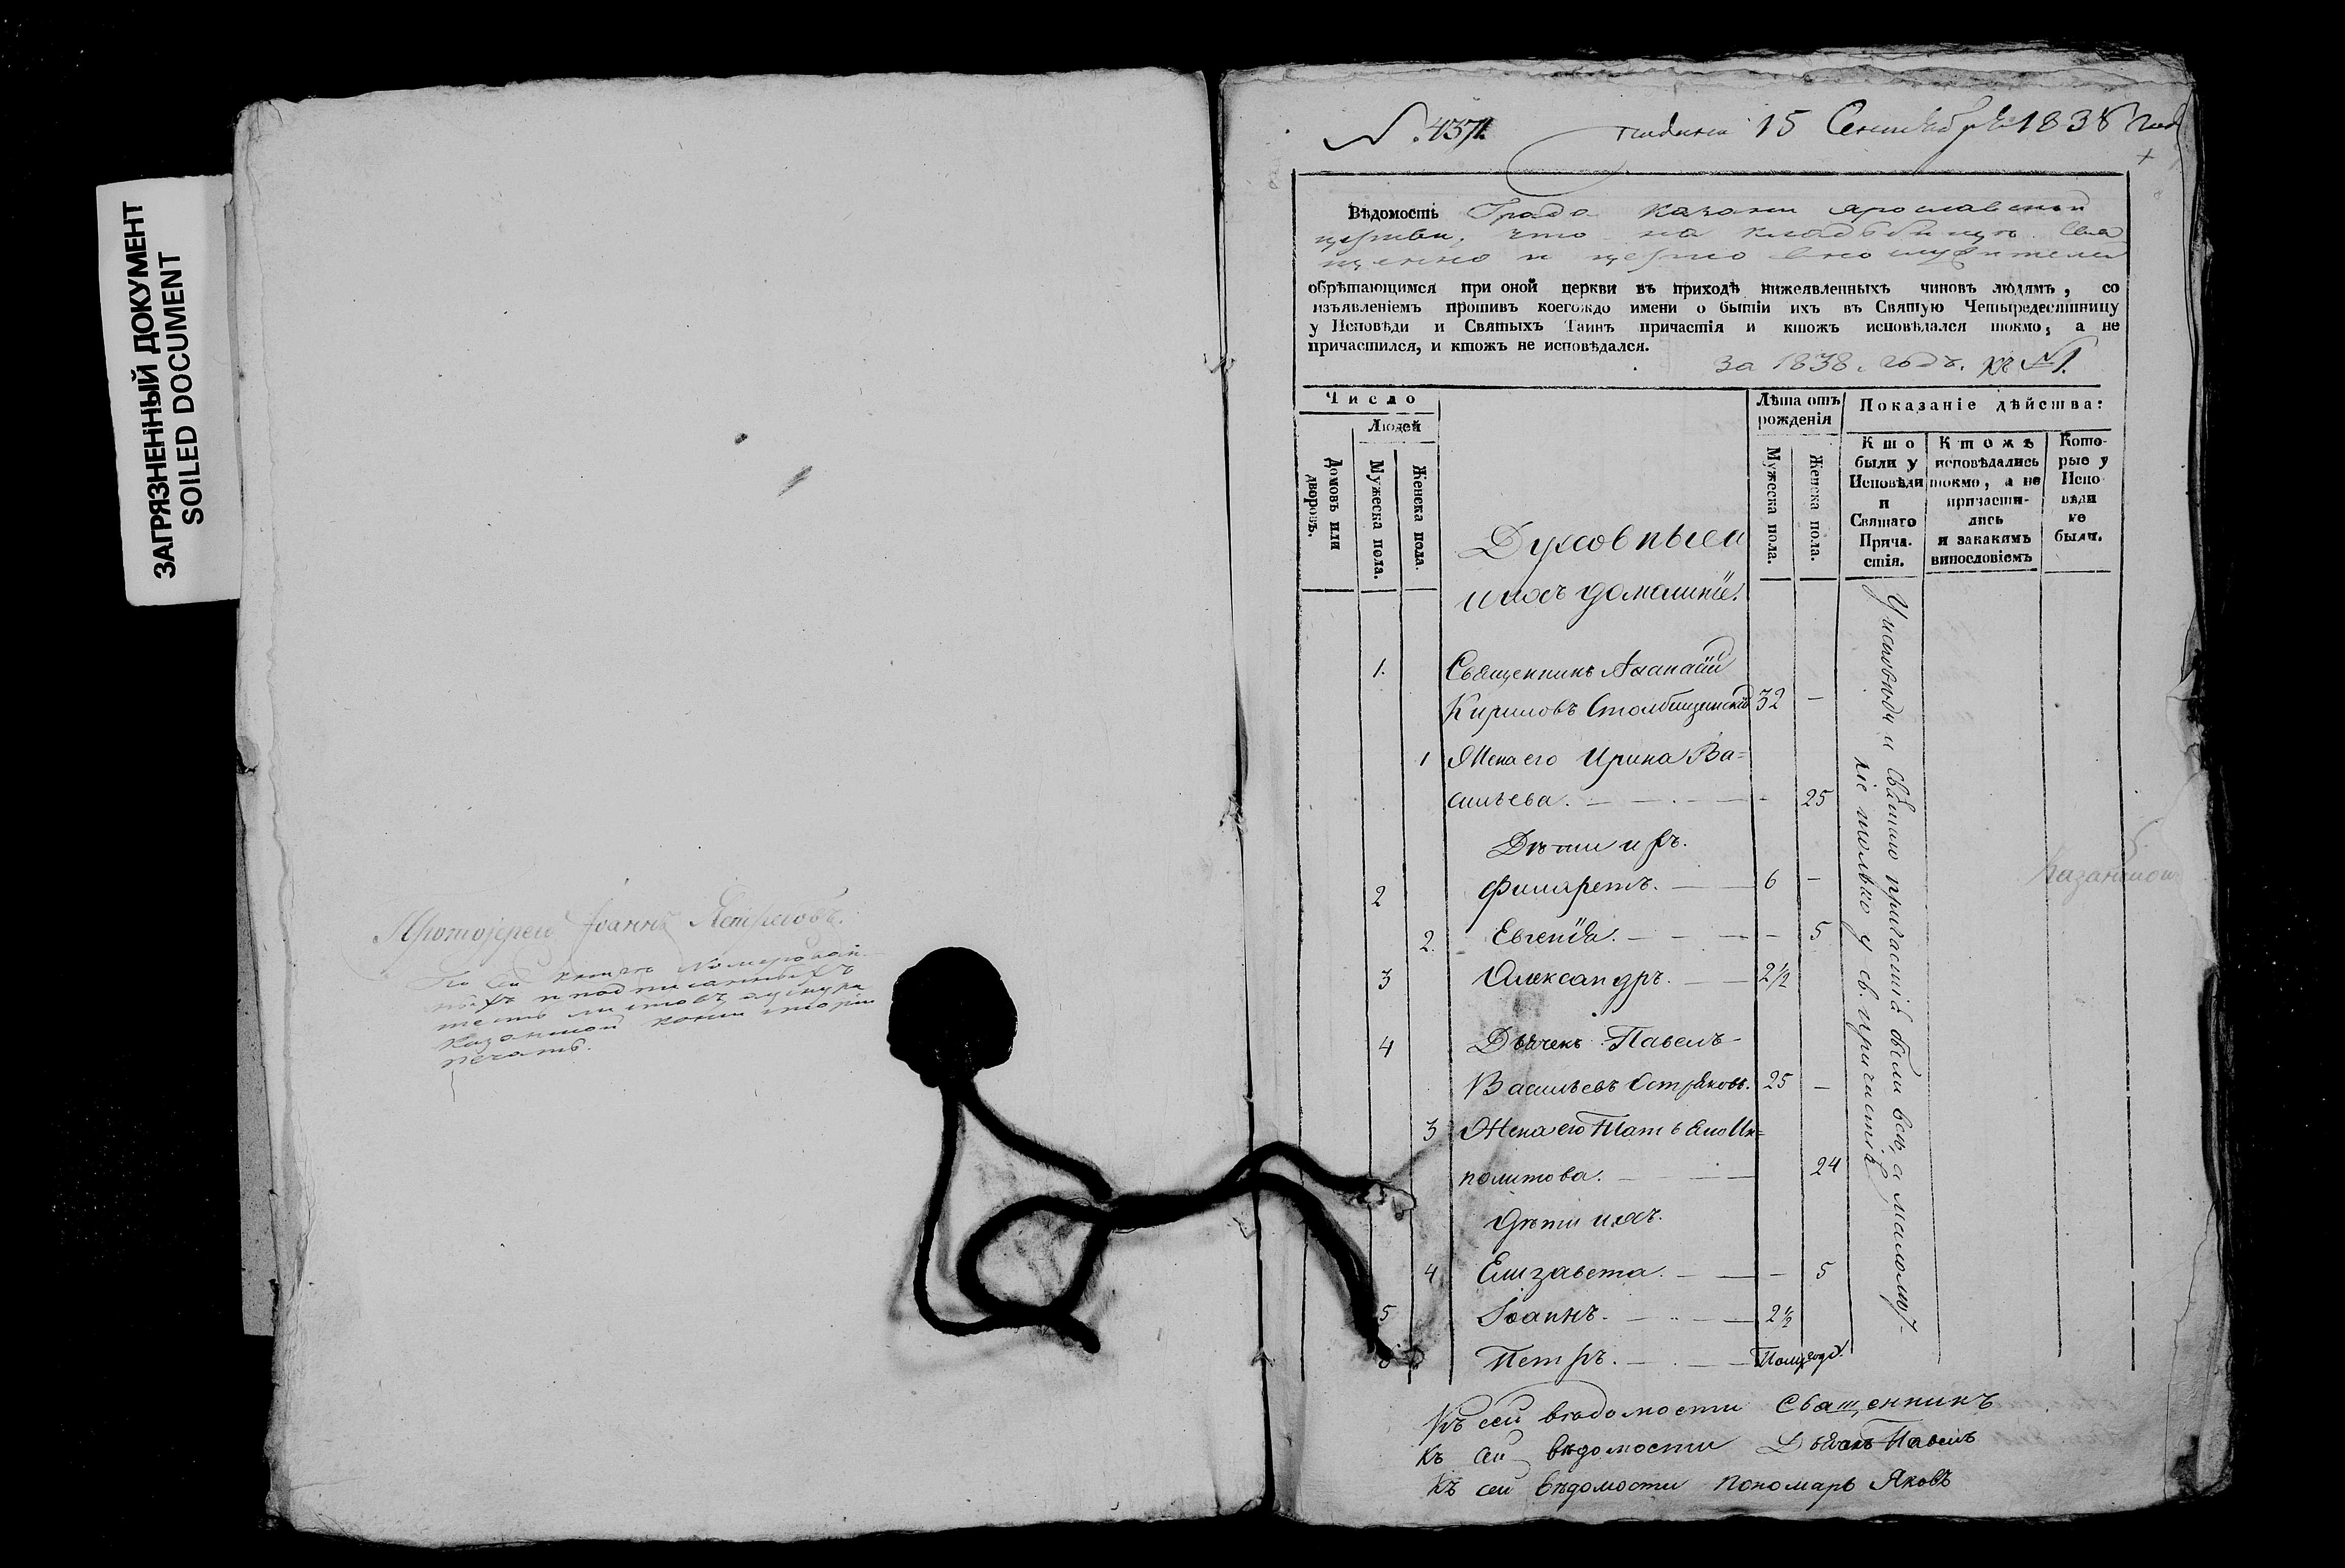 ЗАГРЯЗНЕННЫЙ ДОКУМЕНТ
SOILED DOCUMENT
Протоіерей Іоаннъ
По сей книгѣ Номерован
ныхъ и подписанныхъ
шесть листовъ
Казанской консисторіи
печать.
N. 437.
15 Сентября 1838 года
Вѣдомость Града Казани Ярославской
церкви, что на кладбищѣ Свя
щенно и церковнослужители
обрѣтающимся при оной церкви въ приходѣ нижеявленныхъ чиновъ людямъ, со
изъявленіемъ противъ коегождо имени о бытіи ихъ въ Святую Четыредесятницу
у Исповѣди и Святыхъ Таинъ причастія и ктожъ исповѣдался токмо, а не
причастился, и ктожъ не исповѣдался.
за 1838. годъ. къ №1.
Число
Людей
Домовъ или дворовъ.
Мужеска пола.
Женска пола.
Лѣта отъ рожденія
Мужеска пола.
Женска пола.
Показаніе дѣйства:
Кто были у Исповѣди и Святаго Прича- стія.
Ктожъ исповѣдались токмо, а не причасти- лись и закакимъ винословіемъ
Кото- рые у Испо- вѣди не были.
Духовныеи
ихъ домашніе.
1. Священникъ Аѳанасій
Кириловъ Столбищенскій 32 —
1 Жена его Ирина Ва=
сильева. — 25
Дѣти ихъ.
2 Филаретъ. — 6 —
2. Евгенія. — — 5
3 Александръ. — 2½
4 Дьячекъ Павелъ
Васильевъ Остряковъ. 25 —
3 Жена его Татьяна Ип=
политова. — 24
Дѣти ихъ.
4 Елизавета. — — 5
5 Іоаннъ. — 2½
6 Петръ. — Полугода.
У исповѣди и святаго причастія были всѣ, а малолѣт-
ніе только у св. причастія
Казанской
Къ сей вѣдомости Священникъ
Къ сей вѣдомости Дьячекъ Павелъ
Къ сей вѣдомости Пономарь Яковъ